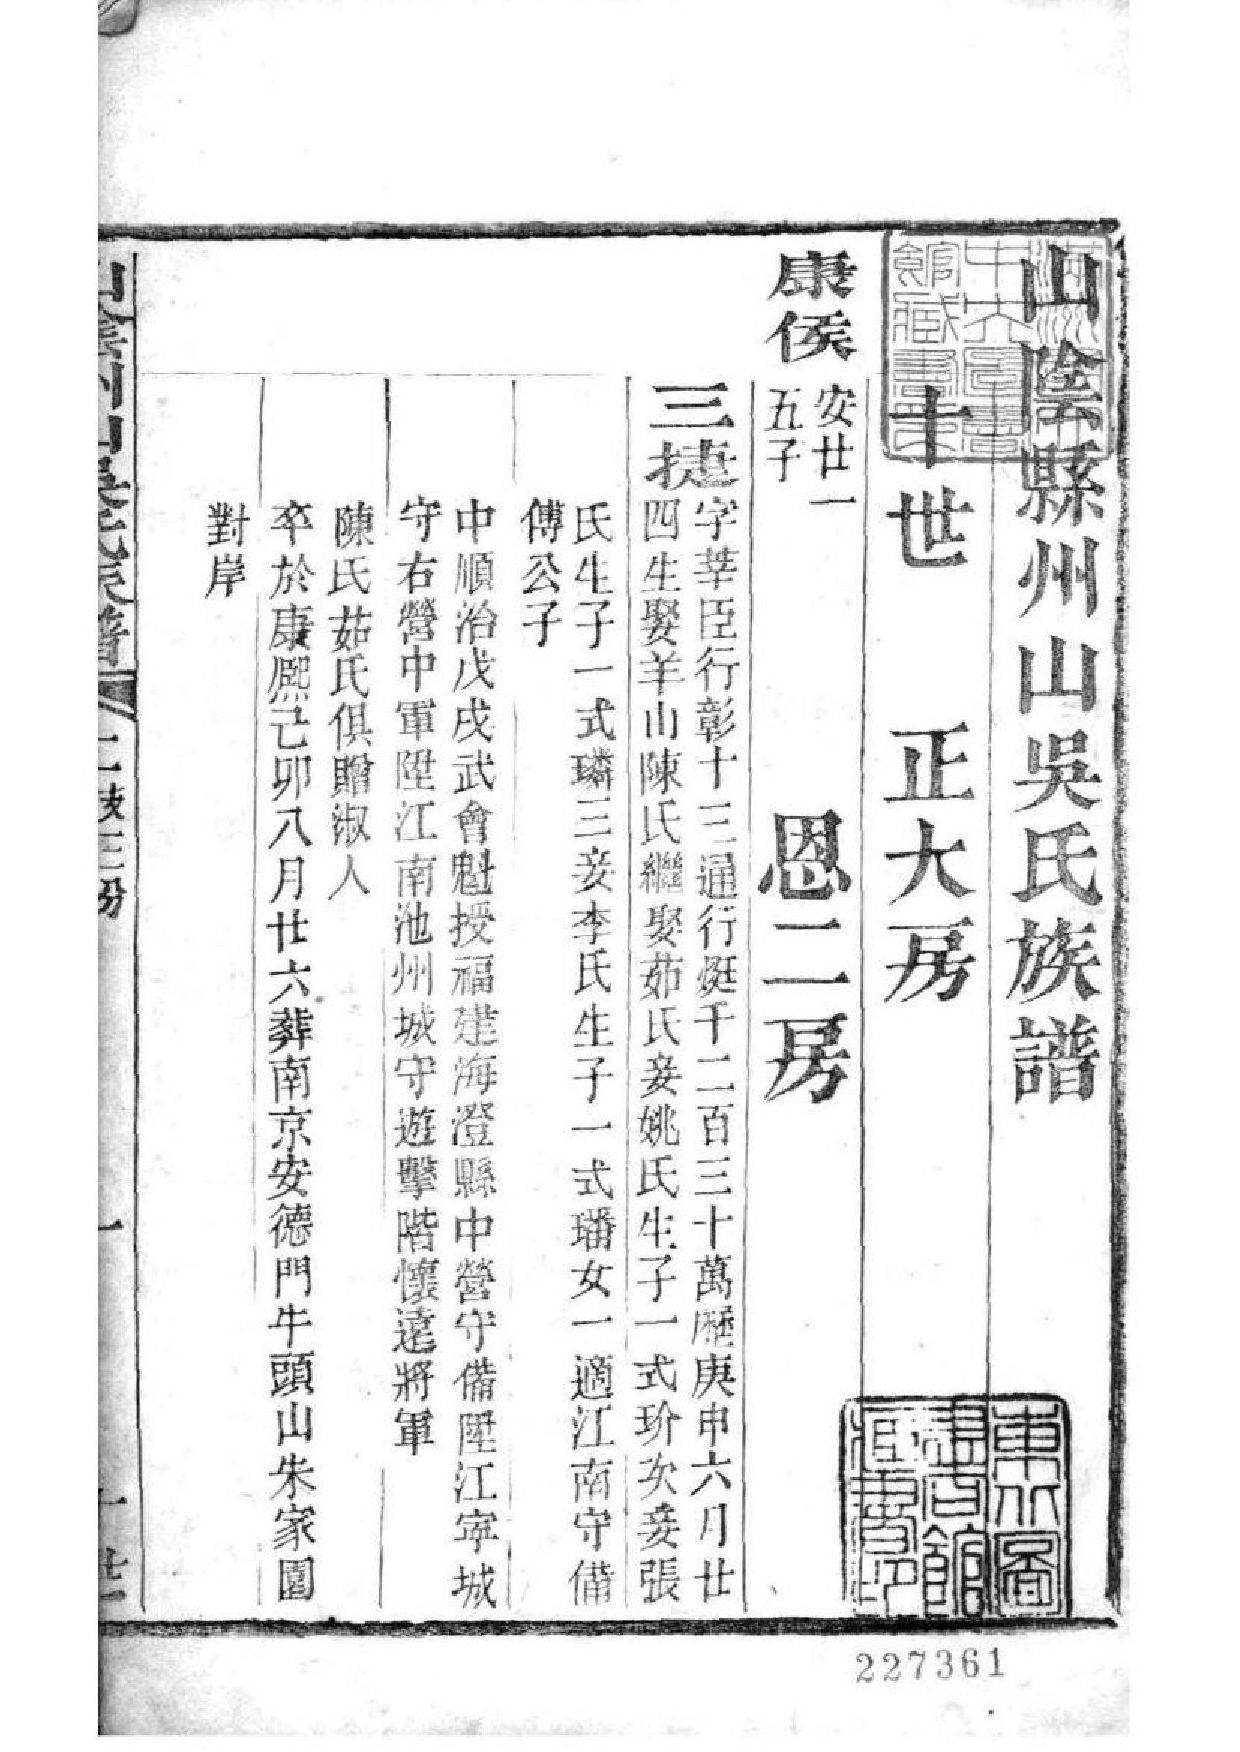 山陰縣州山吳氏族譜
十世 正大房
康侯 安廿一五子 恩二房
三捷 字莘臣行彰十三通行烶千二百三十萬歷庚申六月廿
四生娶羊山陳氏繼娶茹氏妾姚氏生子一式玠次妾張
氏生子一式璘三妾李氏生子一式璠女一適江南守備
傅公子
中順治戊戌武會魁授福建海澄縣中營守備陞江寧城
守右營中軍陞江南池州城守遊擊階懷遠將軍
陳氏茹氏俱贈淑人
卒於康熙己卯八月廿六葬南京安德門牛頭山朱家園
對岸
227361